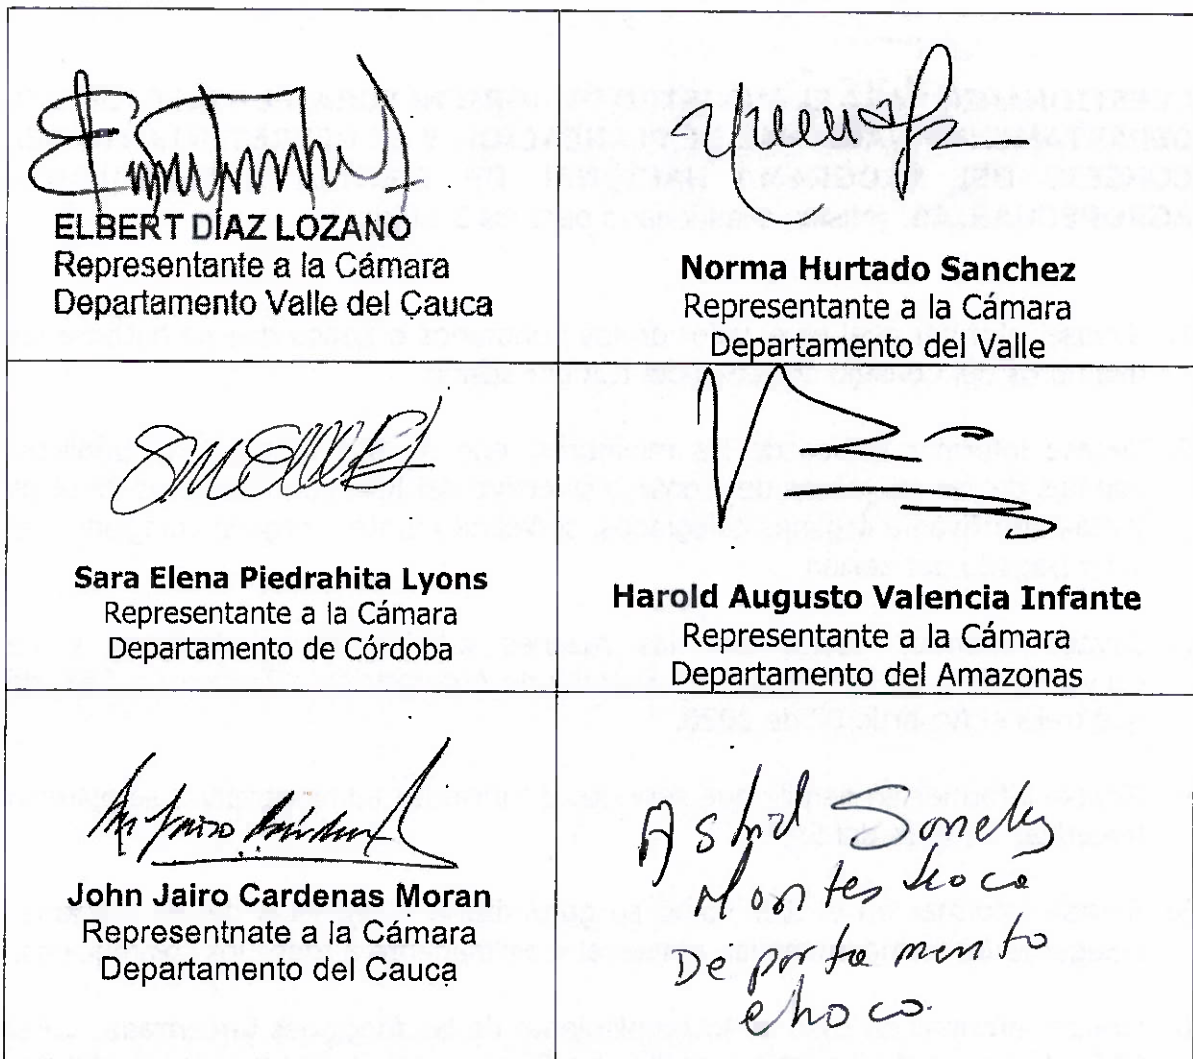 ELBERT DÍAZ LOZANO
Representante a la Cámara
Departamento Valle del Cauca
Norma Hurtado Sanchez
Representante a la Cámara
Departamento del Valle
Sara Elena Piedrahita Lyons
Representante a la Cámara
Departamento de Córdoba
Harold Augusto Valencia Infante
Representante a la Cámara
Departamento del Amazonas
John Jairo Cardenas Moran
Representnate a la Cámara
Departamento del Cauca
Astrid
Montes
Departamento
choco.